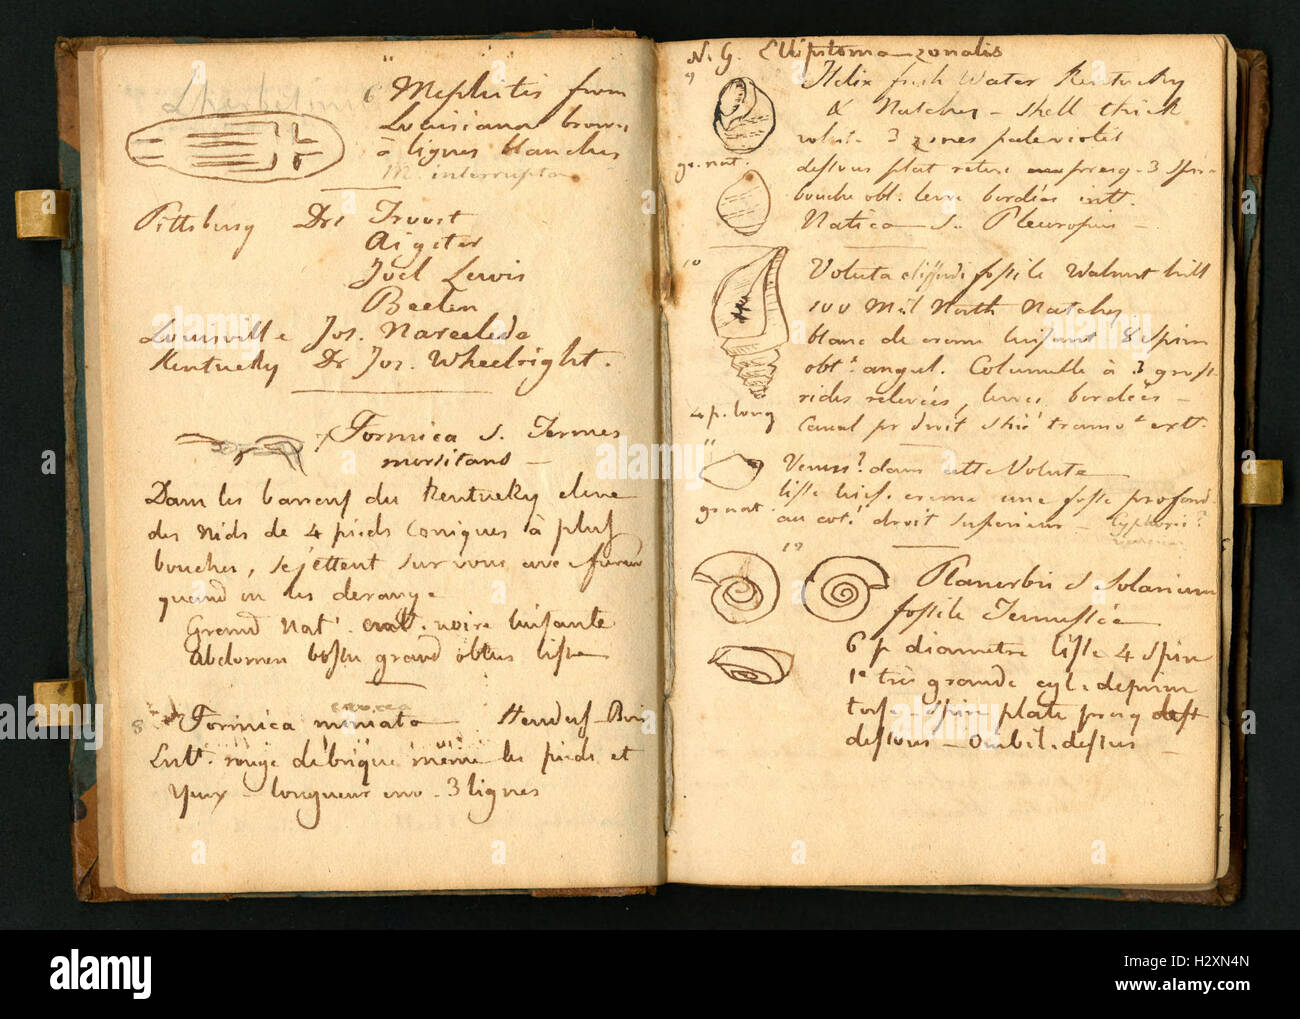 6 Mephitis from
Louisiana brown
à lignes blanches
M. interrupta
Pittsburg Drs Troost
Aigster
Joel Lewis
Beelen
Louisville Jos.
Kentucky Dr Jos. Wheelright.
Formica s. Termes
morsitans
Dans les du Kentucky eleve
des nids de 4 pieds coniques à plus
bouches, se jettent sur vous avec fureur
quand on les derange
Grand nat. noire luisante
Abdomen bossu grand obtus lisse
8 Formica miniata
rouge de brique même les pieds et
Yeux - longueur env. 3 lignes
N. G. Elliptoma zonalis
9 Helix fresh Water Kentucky
& Natchez - shell thick
3 zones pale violet
gr. nat.
dessous plat 3 spir
bouche obt. levre bordée intt.
Natica s. Pleuropus
10 Voluta fossile Walnut hill
100 Mil North Natchez
blanc de creme luisant 8 spires
obtt. angul. Columelle à 3 gross
rides relevées, levres bordées -
4 p. long
Canal pr droit strié transvt extt.
11 Venus? dans cette Volute
lisse luis. creme une fosse profond
gr nat.
au coté droit superieur -
12
Planorbis s Solarium
fossile Tennessée
6 p diametre lisse 4 spir
1e très grande cyl. deprim
spire plate presq
dessous - Ombil. dessus -
alamy
a
Image ID: H2XN4N
www.alamy.com